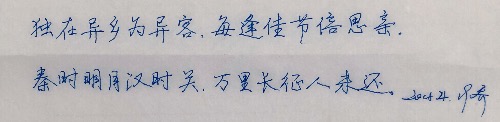 独在异乡为异客，每逢佳节倍思亲．
秦时明月汉时关，万里长征人未还。